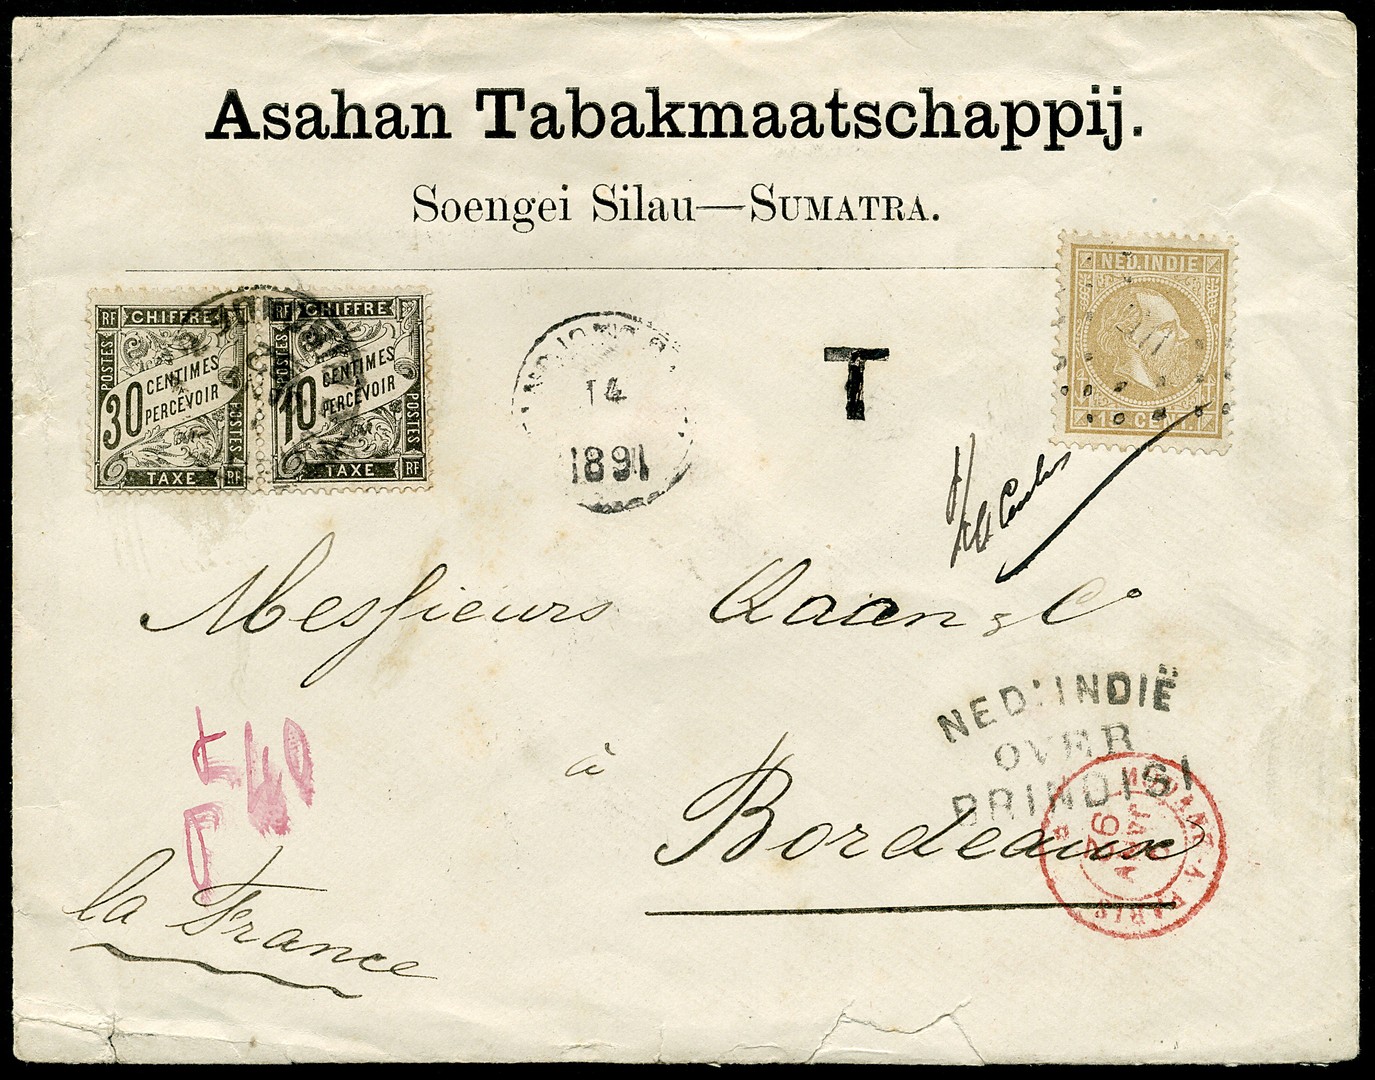 Asahan Tabakmaatschappij.
Soengei Silau—SUMATRA.
RF CHIFFRE
POSTES
30 CENTIMES
À
PERCEVOIR
POSTES
TAXE RF
RF CHIFFRE
10 CENTIMES
À
PERCEVOIR
POSTES
TAXE RF
14
1891
T
NED. INDIE
CENT.
Messieurs
& Co
à
Bordeaux
la France
NED: INDIË
OVER
BRINDISI
MODANE-A-PARIS
26
40